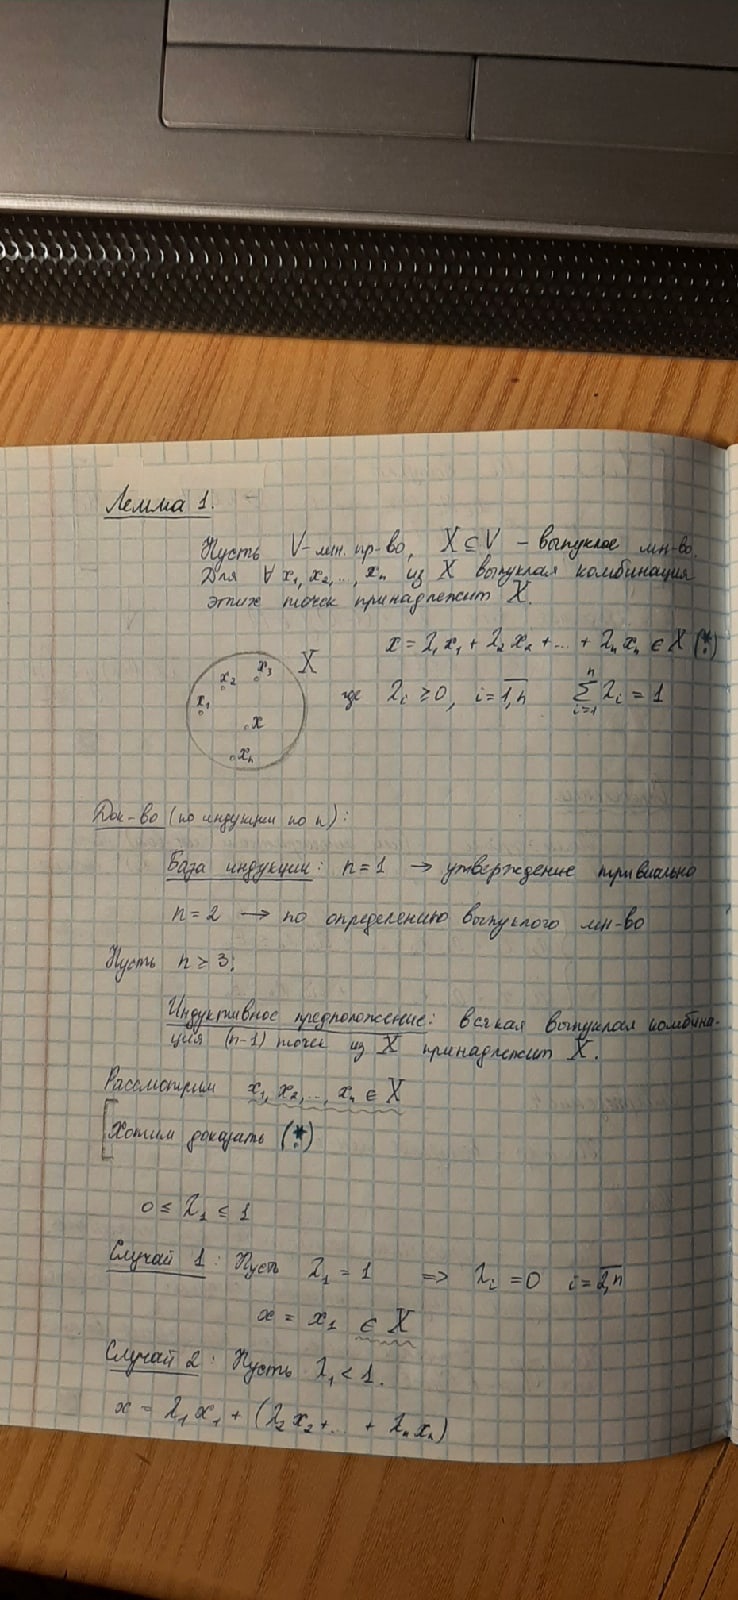 Лемма 1.
Пусть V-лин. пр-во, X ⊆ V – выпуклое мн-во.
Для ∀ x₁, x₂, ..., xₙ из X выпуклая комбинация
этих точек принадлежит X.
x = λ₁x₁ + λ₂x₂ + ... + λₙxₙ ∈ X (*)
x₁ x₂ x₃ X
x
xₙ
где λᵢ ≥ 0, i = 1,n ∑ᵢ₌₁ⁿ λᵢ = 1
Док-во (по индукции по n):
База индукции: n = 1 → утверждение тривиально
n = 2 → по определению выпуклого мн-во
Пусть n ≥ 3:
Индуктивное предположение: всякая выпуклая комбина-
ция (n-1) точек из X принадлежит X.
Рассмотрим x₁, x₂, ..., xₙ ∈ X
Хотим доказать (*)
0 ≤ λ₁ ≤ 1
Случай 1: Пусть λ₁ = 1 => λᵢ = 0 i = 2,n
x = x₁ ∈ X
Случай 2: Пусть λ₁ < 1.
x = λ₁x₁ + (λ₂x₂ + ... + λₙxₙ)